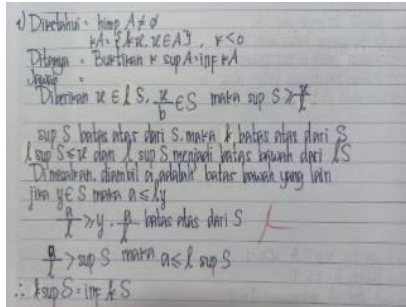 1) Diketahui = himp A ≠ ∅
kA = {kx, x ∈ A}, k < 0
Ditanya = Buktikan k sup A = inf kA
Jawab =
Diberikan x ∈ l S, x/b ∈ S maka sup S ≥ x/l
sup S batas atas dari S, maka k batas atas dari S
l sup S ≤ x dan l sup S menjadi batas bawah dari lS
Dimisalkan, diambil a adalah batas bawah yang lain
jika y ∈ S maka a ≤ ly
a/l ≥ y. a/l batas atas dari S
a/l > sup S maka a ≤ l sup S
∴ k sup S = inf k S